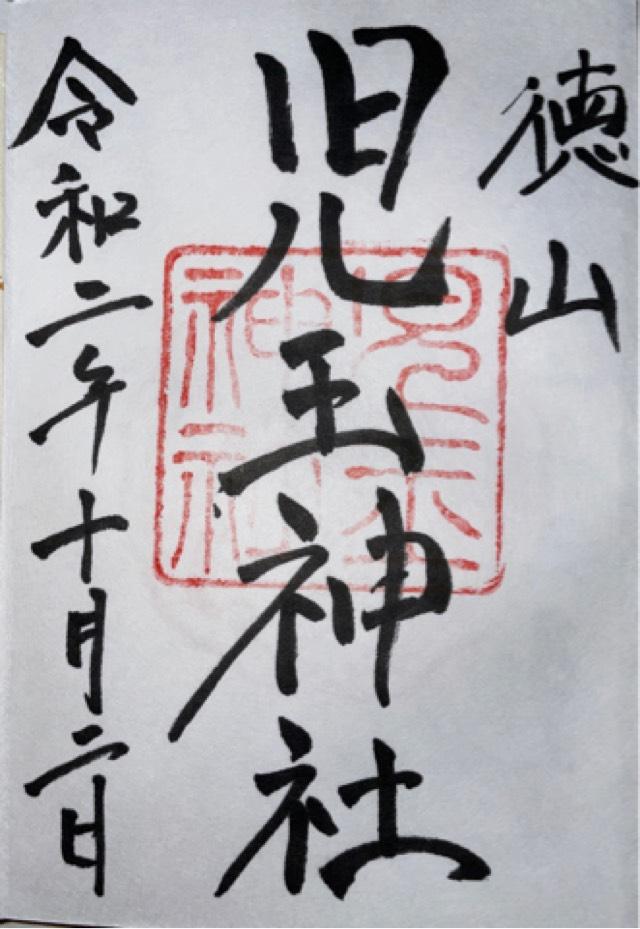 徳山
児玉神社
令和二年十月二日
児玉
神社